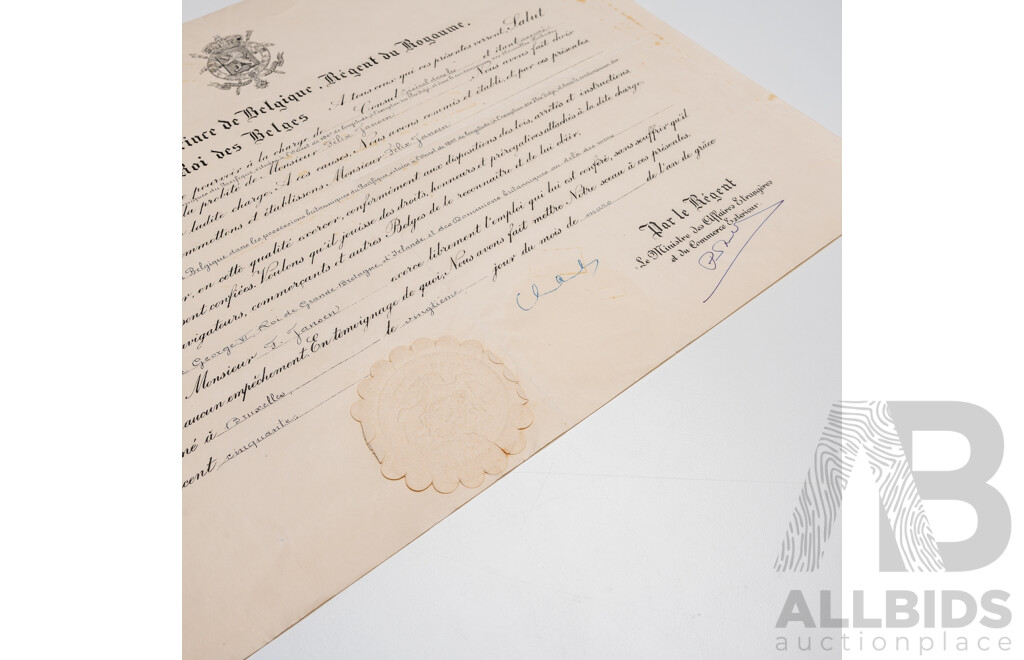 ince de Belgique, Régent du Royaume.
A tous ceux qui ces présentes verront, Salut
Roi des Belges
pourvoir à la charge de Consul
et étant
la probité de Monsieur Félix Jansen
Nous avons fait choix
ladite charge. A ces causes, Nous avons commis et établi, et, par ces présentes
mettons et établissons Monsieur Félix Jansen
Belgique dans les possessions britanniques du Pacifique
er, en cette qualité exercer, conformément aux dispositions des lois, arrêtés et instructions
sont confiées. Voulons qu'il jouisse des droits, honneurs et prérogatives attachés à la dite charge.
avigateurs, commerçants et autres Belges de le reconnaître et de lui obéir.
George VI, Roi de Grande Bretagne, d'Irlande et des Dominions britanniques au delà des mers
Monsieur F. Jansen exerce librement l'emploi qui lui est confié, sans souffrir qu'il
aucun empêchement. En témoignage de quoi, Nous avons fait mettre Notre sceau à ces présentes.
né à Bruxelles le vingtième jour du mois de mars de l'an de grâce
cent cinquante
Par le Régent
Le Ministre des Affaires Etrangères
et du Commerce Extérieur.
AB
ALLBIDS
auctionplace